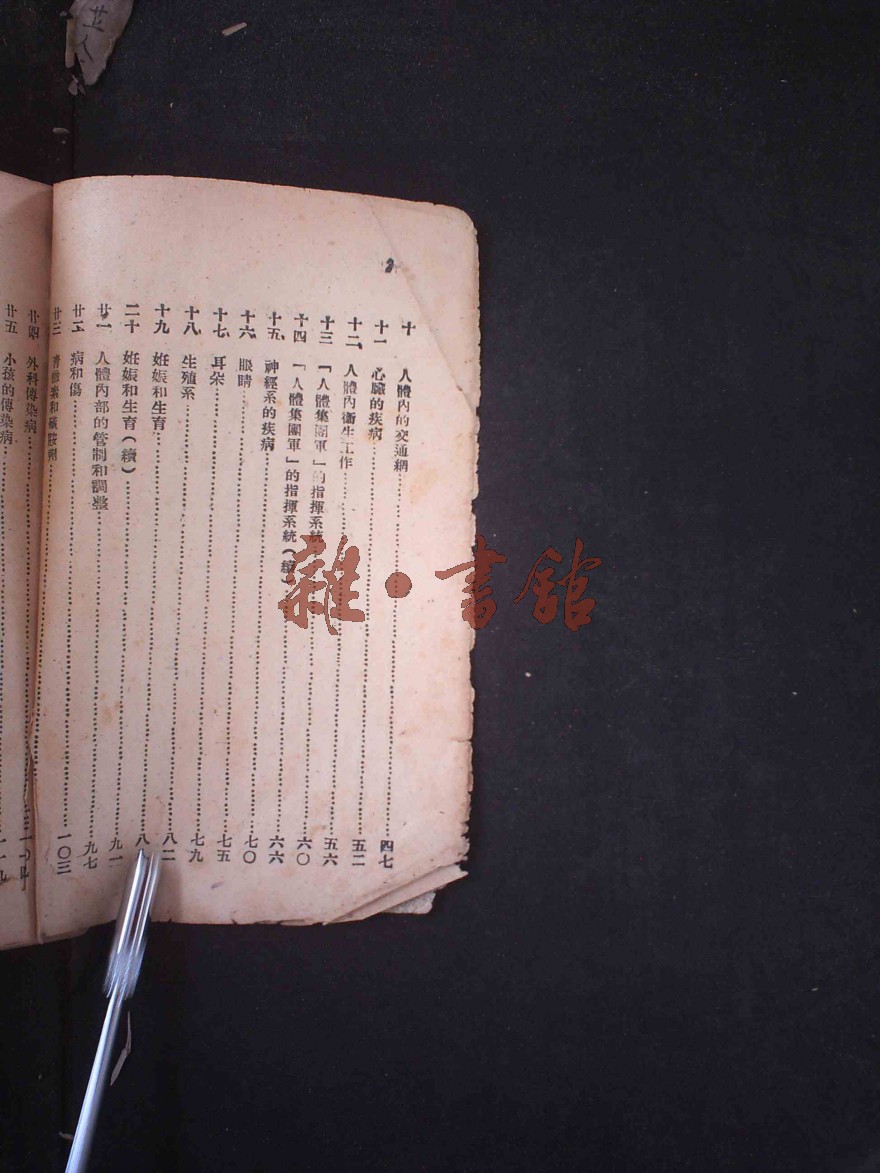 2
十 人體內的交通網……四七
十一 心臟的疾病……五二
十二 人體內衛生工作……五六
十三 「人體集團軍」的指揮系統……六〇
十四 「人體集團軍」的指揮系統(續)……六六
十五 神經系的疾病……七〇
十六 眼睛……七五
十七 耳朵……七九
十八 生殖系……八二
十九 妊娠和生育……八
二十 妊娠和生育(續)……九一
廿一 人體內部的管制和調整……九七
廿二 病和傷……一〇三
廿三 青黴素和磺胺劑……
廿四 外科傳染病……
廿五 小孩的傳染病……一一九
雜·書館